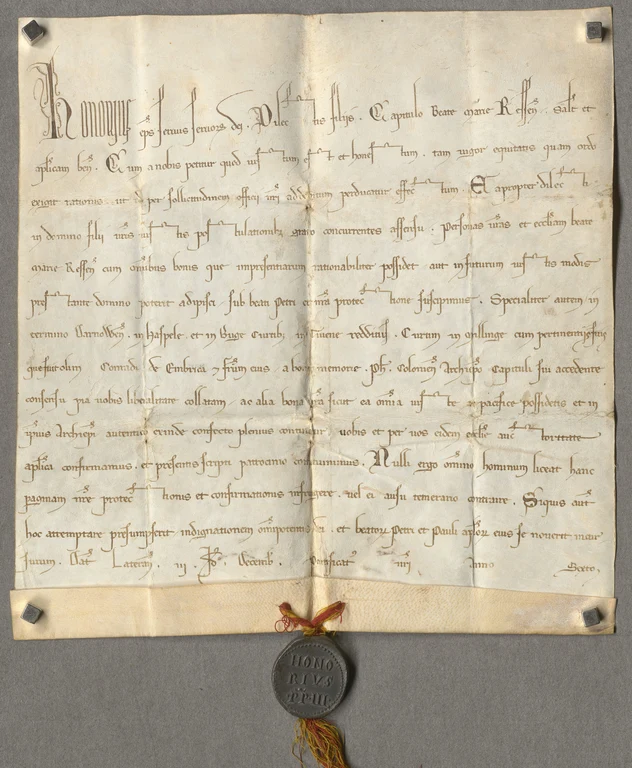 Honorius eps servus servorˢ di. Dilectis filiis. Capitulo beate marie Ressen̄. Salt̄ et
aplicam ben̄. Cum a nobis petitur quod iustum est et honestum. tam vigor equitatis quam ordo
exigit rationis. ut id per sollicitudinem officii nr̄i ad debitum perducatur effectum. Eapropter dilecti
in domino filii vr̄is iustis postulationibȝ grato concurrentes assensu. Personas vr̄as et ecclīam beate
marie Ressen̄ cum om̄ibus bonis que impresentiarum rationabiliter possidet. aut in futurum iustis modis
prestante domino poterit adipisci. sub beati Petri et nr̄a protectione suscipimus. Specialiter autem in
termino in Haspele. et in curtibȝ redditus. Curtim in cum pertinentiis suis
Conradi de Embrica ⁊ frm̄ eius. a bone memorie. Ph. Colonien̄ Archiepō Capituli sui accedente
consensu pia vobis liberalitate collatam. ac alia bona vr̄a sicut ea om̄ia iuste ac pacifice possidetis et in
ipsius Archiepi autentico exinde confecto plenius continetur vobis et per vos eidem ecclie auctoritate
aplica confirmamus. et presentis scripti patrocinio communimus. Nulli ergo om̄ino hominum liceat hanc
paginam nr̄e protectionis et confirmationis infringere. vel ei ausu temerario contraire. Siquis aut̄
hoc attemptare presumpserit indignationem om̄ipotentis dei. et beatorˢ Petri et Pauli aplorˢ eius se noverit incur
surum. Dat̄ Lateran̄. iii. Id. Decembr̄. Pontificatˢ nr̄i Anno Sexto.
HONO
RIVS
PP III